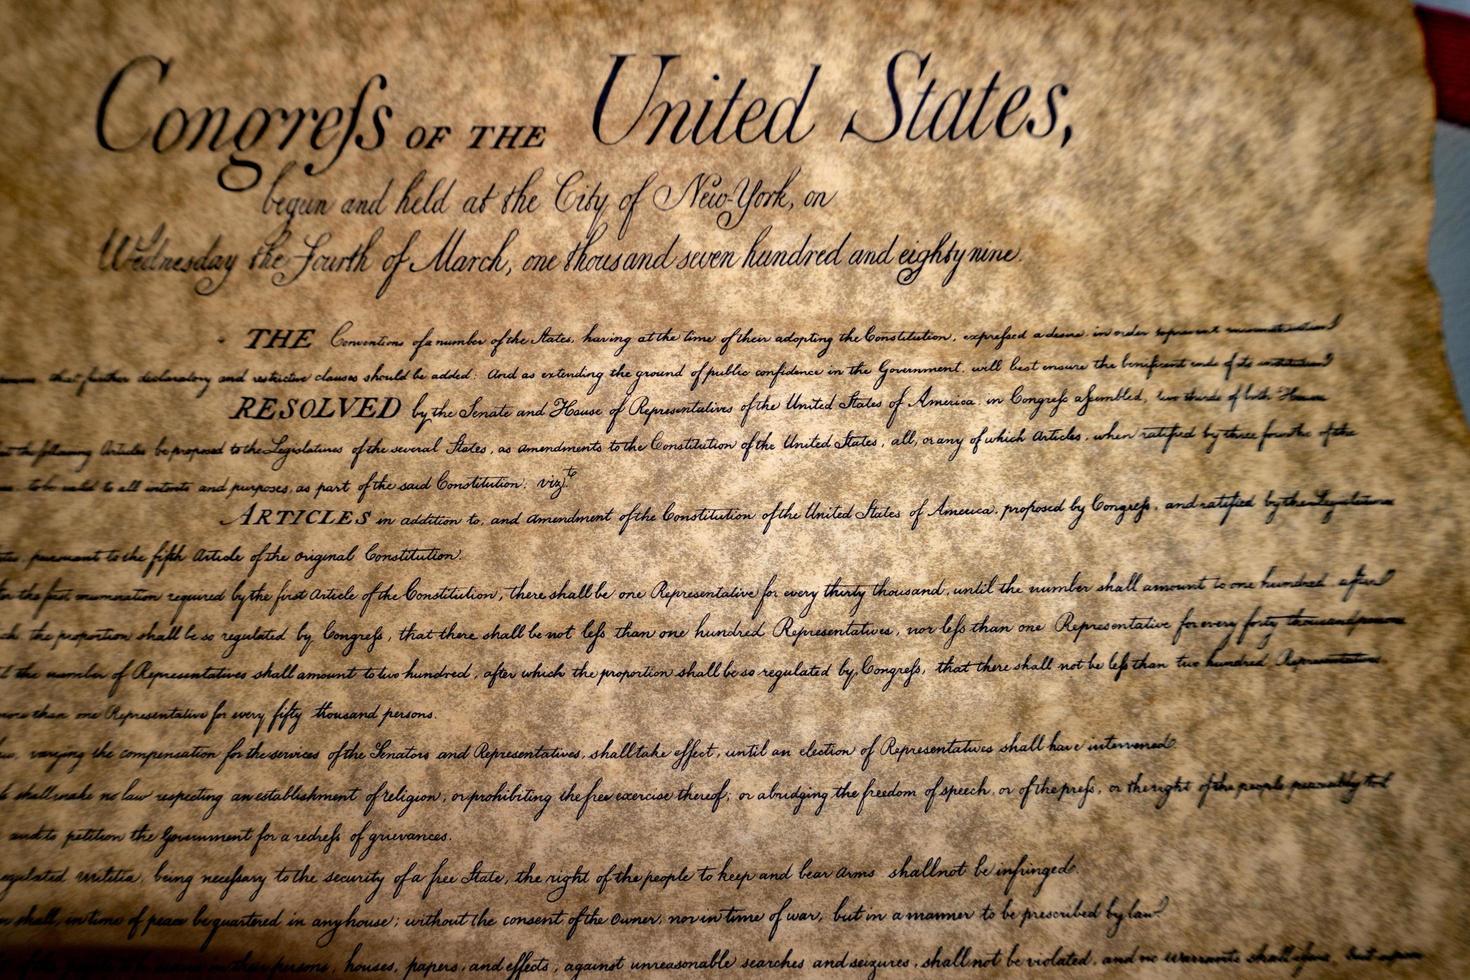 Congreſs OF THE United States,
begun and held at the City of New-York, on
Wednesday the Fourth of March, one thousand seven hundred and eighty nine.
THE Conventions of a number of the States, having at the time of their adopting the Constitution, expreſsed a desire, in order to prevent
that further declaratory and restrictive clauses should be added: And as extending the ground of public confidence in the Government, will best ensure the benificent ends of its institution
RESOLVED by the Senate and House of Representatives of the United States of America, in Congreſs aſsembled, two thirds of both Houses
the following Articles be proposed to the Legislatures of the several States, as amendments to the Constitution of the United States, all, or any of which Articles, when ratified by three fourths of the
to be valid to all intents and purposes, as part of the said Constitution; vizt.
ARTICLES in addition to, and amendment of the Constitution of the United States of America, proposed by Congreſs, and ratified by the Legislatures
pursuant to the fifth Article of the original Constitution.
the first enumeration required by the first Article of the Constitution, there shall be one Representative for every thirty thousand, until the number shall amount to one hundred, after
the proportion shall be so regulated by Congreſs, that there shall be not leſs than one hundred Representatives, nor leſs than one Representative for every forty thousand persons
the number of Representatives shall amount to two hundred, after which the proportion shall be so regulated by Congreſs, that there shall not be leſs than two hundred Representatives
more than one Representative for every fifty thousand persons.
varying the compensation for the services of the Senators and Representatives, shall take effect, until an election of Representatives shall have intervened.
shall make no law respecting an establishment of religion, or prohibiting the free exercise thereof; or abridging the freedom of speech, or of the preſs, or the right of the people peaceably to
and to petition the Government for a redreſs of grievances.
regulated militia, being neceſsary to the security of a free State, the right of the people to keep and bear arms, shall not be infringed.
shall, in time of peace be quartered in any house, without the consent of the owner, nor in time of war, but in a manner to be prescribed by law.
their persons, houses, papers, and effects, against unreasonable searches and seizures, shall not be violated, and no warrants shall issue, but upon